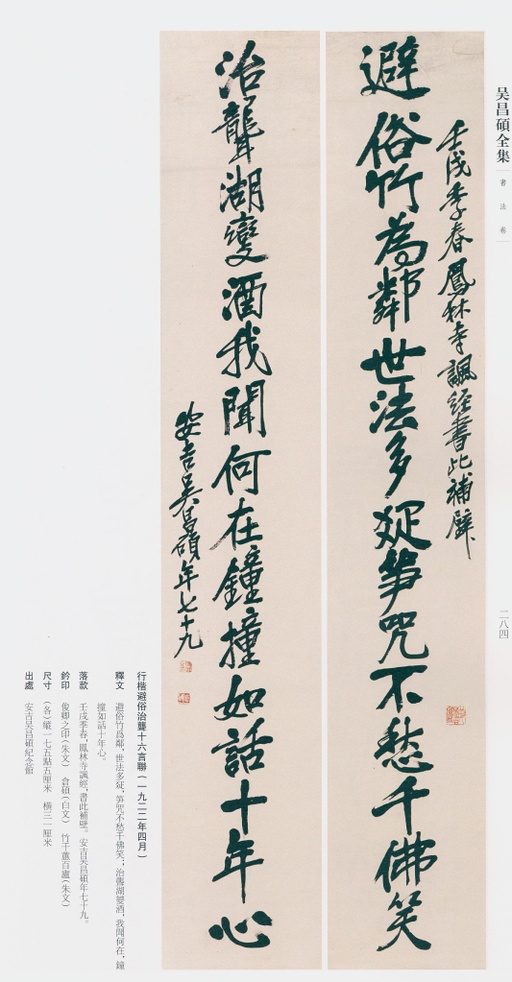 吴昌碩全集
書法卷
壬戌季春鳳林寺諷經書此補壁
避俗竹為鄰世法多娗笋咒不愁千佛笑
二八四
治聾湖變酒我聞何在鐘撞如話十年心
安吉吴昌碩年七十九
行楷避俗治聾十六言聯(一九二二年四月)
釋文 避俗竹爲鄰,世法多娗,笋咒不愁千佛笑;治聾湖變酒,我聞何在,鐘
撞如話十年心。
落款 壬戌季春,鳳林寺諷經,書此補壁。安吉吴昌碩年七十九。
鈐印 俊卿之印(朱文) 倉碩(白文)
尺寸 (各)縱一七五點五厘米 橫三一厘米
出處 安吉吴昌碩紀念館